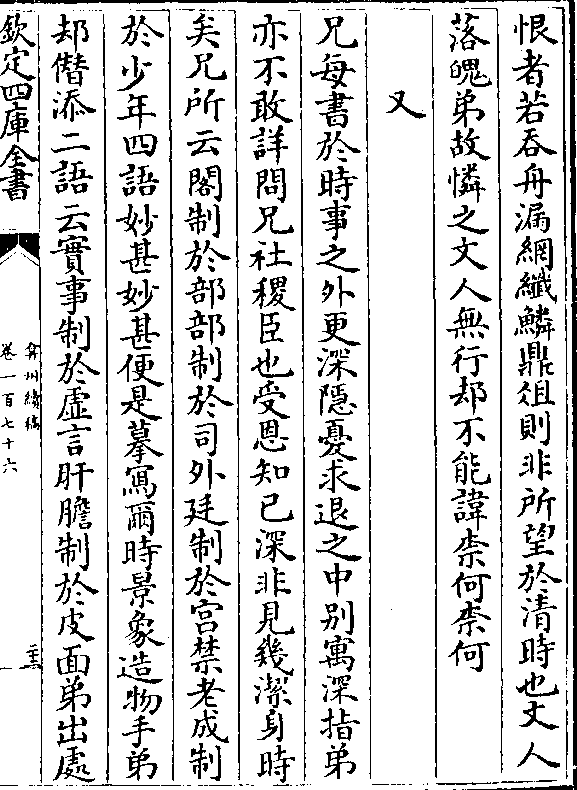 恨者若吞舟漏網纖鱗鼎俎則非所望於清時也丈人
落魄弟故憐之文人無行却不能諱柰何柰何
又
兄每書於時事之外更深隱憂求退之中别寓深指弟
亦不敢詳問兄社稷臣也受恩知已深非見幾潔身時
矣兄所云閣制於部部制於司外廷制於宫禁老成制
於少年四語妙甚妙甚便是摹寫爾時景象造物手弟
却僭添二語云實事制於虛言肝膽制於皮面弟出處
欽定四庫全書
弇州續稿
卷一百七十六
二十三